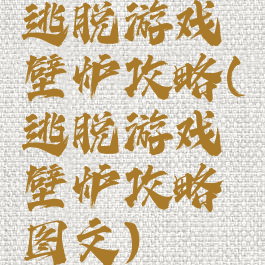 逃脱游戏
壁炉攻略(
逃脱游戏
壁炉攻略
图文)